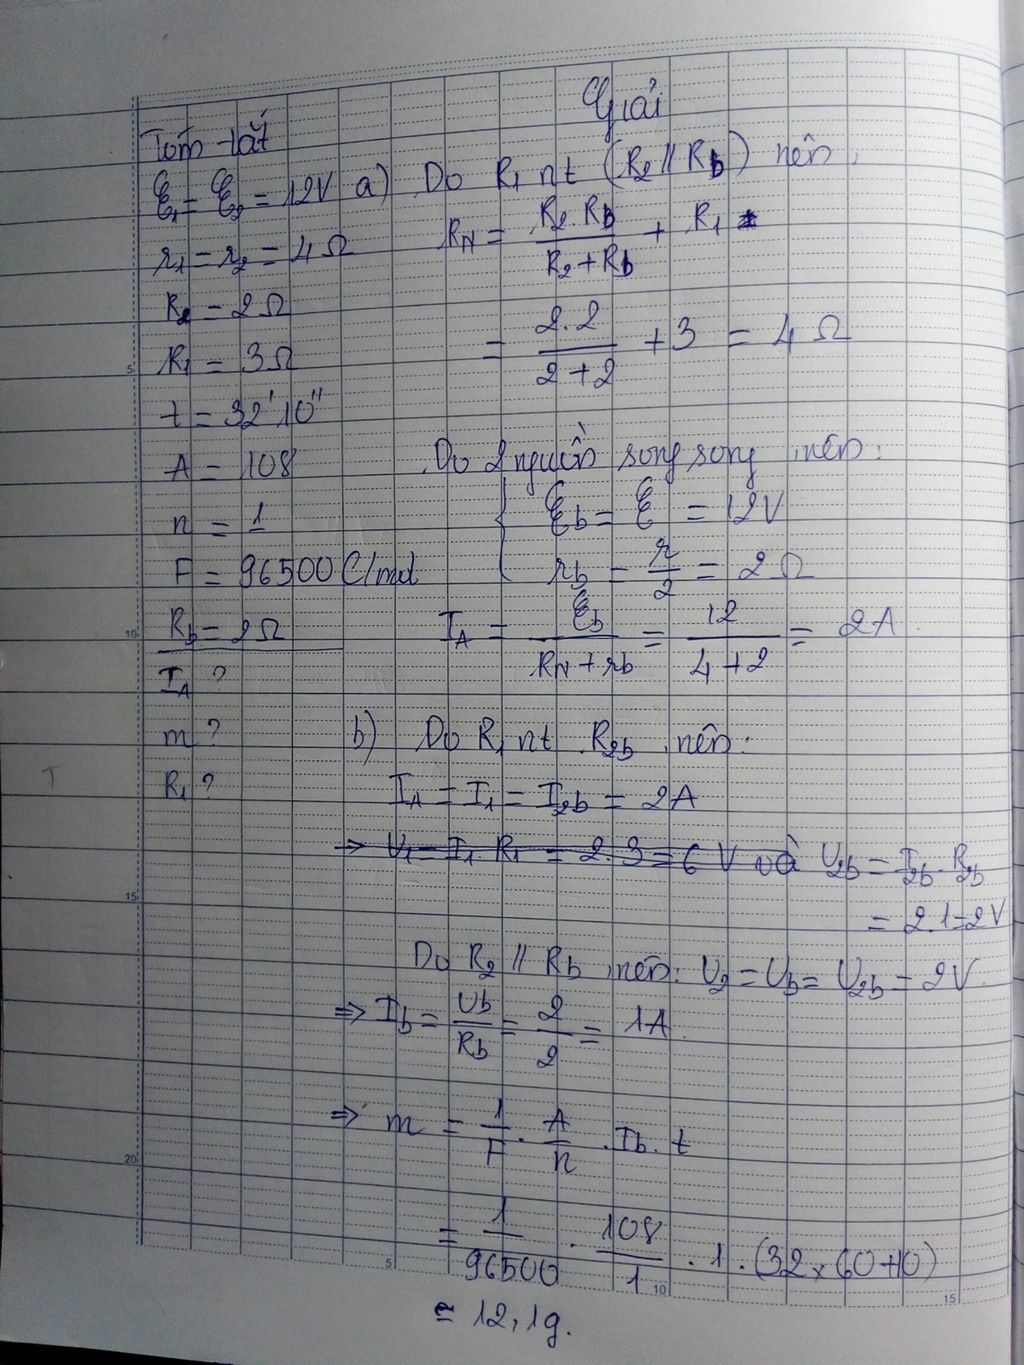 Giải
Tóm tắt
ℰ₁ = ℰ₂ = 12V
r₁ = r₂ = 4Ω
R₂ = 2Ω
R₁ = 3Ω
t = 32'10"
A = 108
n = 1
F = 96500 C/mol
R_b = 2Ω
I_A ?
m ?
R₁ ?
a) Do R₁ nt (R₂ // R_b) nên:
R_N = (R₂.R_b)/(R₂+R_b) + R₁
= (2.2)/(2+2) + 3 = 4Ω
Do 2 nguồn song song nên:
ℰ_b = ℰ = 12V
r_b = r/2 = 2Ω
I_A = ℰ_b/(R_N + r_b) = 12/(4+2) = 2A.
b) Do R₁ nt R₂b nên:
I_A = I₁ = I₂b = 2A
→ U₁ = I₁.R₁ = 2.3 = 6V và U₂b = I₂b.R₂b
= 2.1=2V
Do R₂ // R_b nên: U₂ = U_b = U₂b = 2V.
⇒ I_b = U_b/R_b = 2/2 = 1A.
⇒ m = 1/F . A/n . I_b. t
= 1/96500 . 108/1 . 1. (32×60+10)
≃ 12,1g.